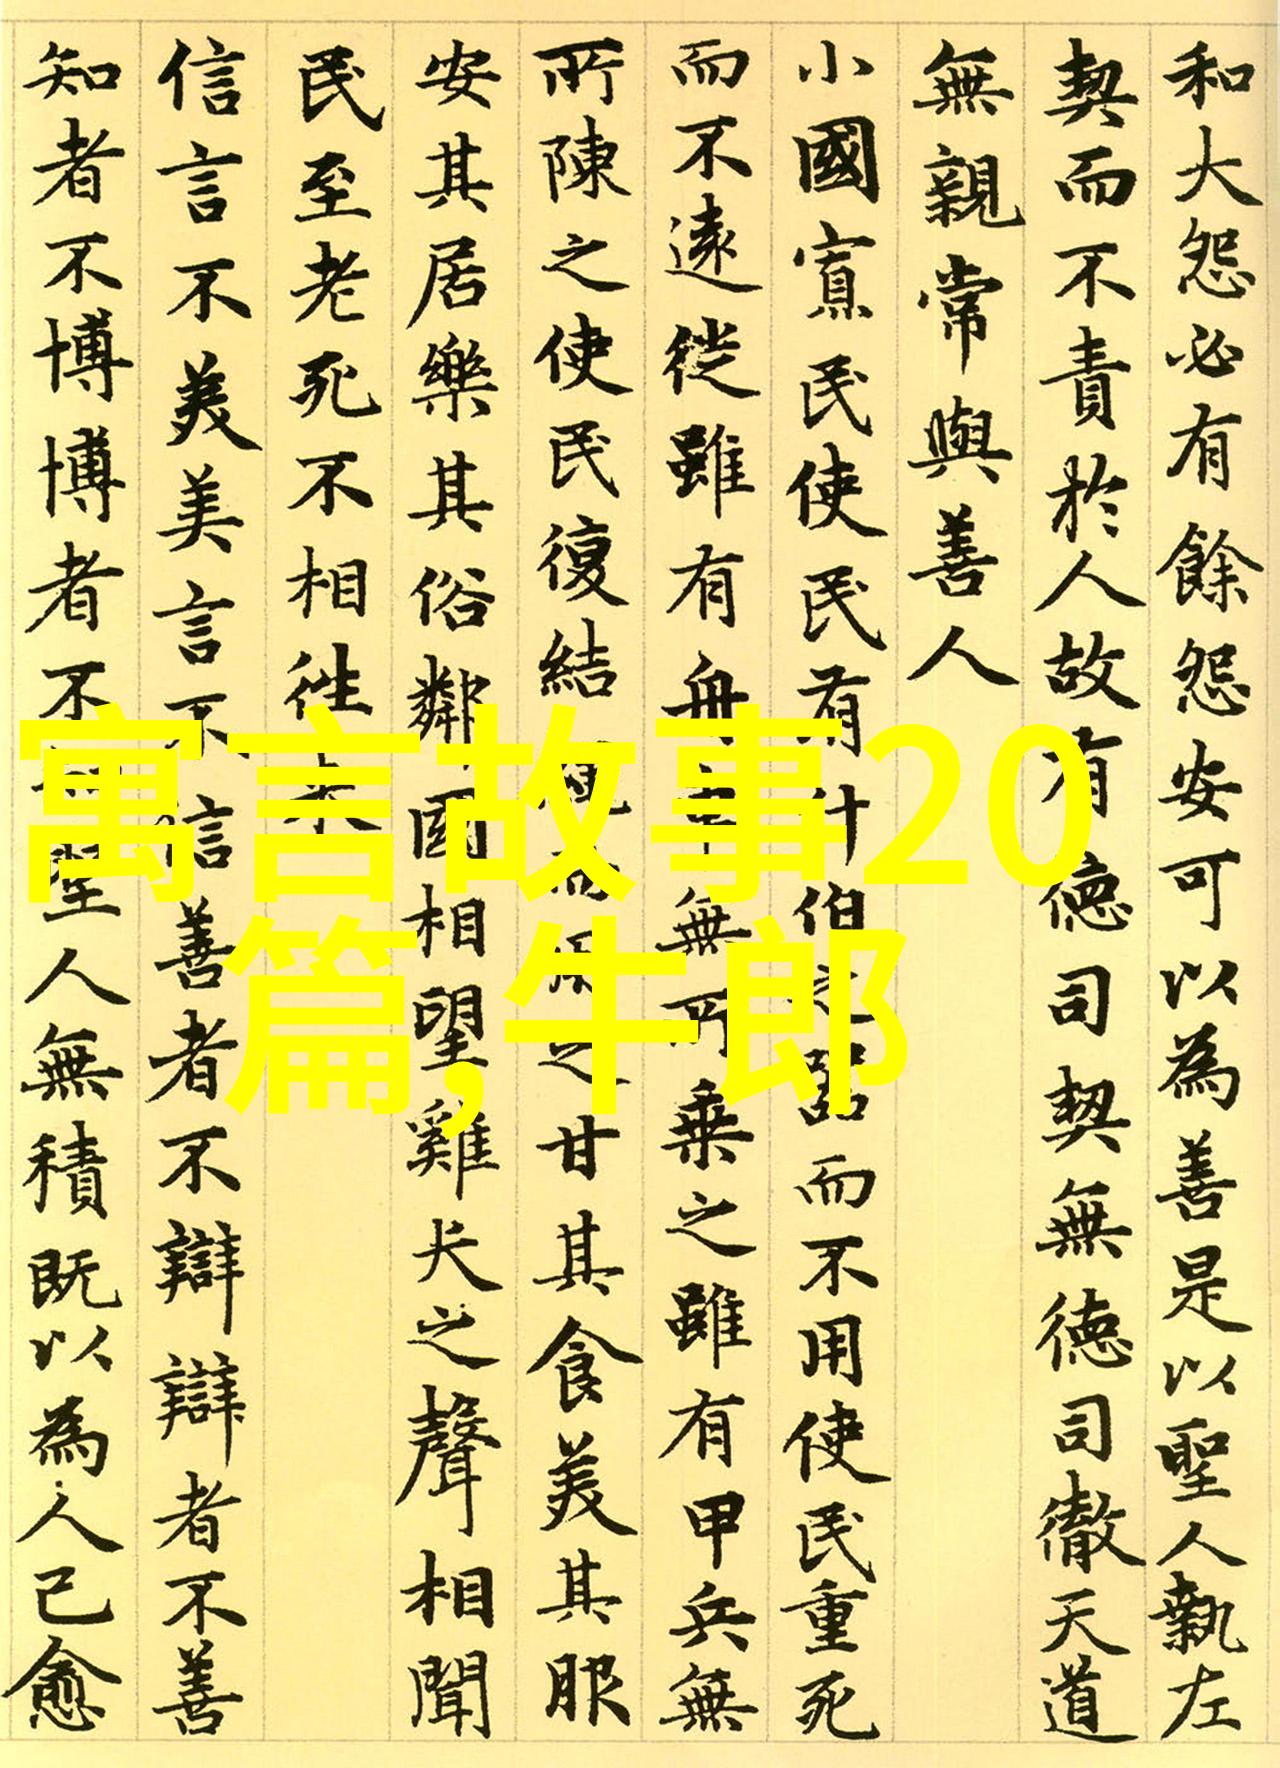 和大怨必有餘怨安可以為善是以聖人執左
契而不責於人故有德司契無德司徹天道
無親常與善人
小國寡民使民有什伯之器而不用使民重死
而不遠徙雖有舟車無所乗之雖有甲兵無
所陳之使民復結繩而用之甘其食美其服
安其居樂其俗鄰國相望雞犬之聲相聞
民至老死不相往来
信言不美美言不信善者不辯辯者不善
知者不博博者不知聖人無積既以為人己愈
寓言故事20
篇,牛郎